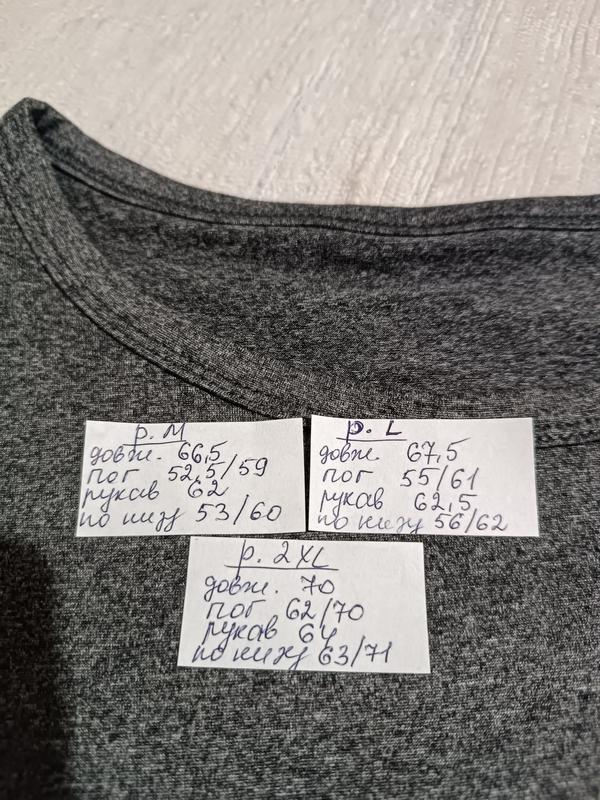 р. М
довж. 66,5
пог 52,5/59
рукав 62
по низу 53/60
р. L
довж. 67,5
пог 55/61
рукав 62,5
по низу 56/62
р. 2XL
довж. 70
пог 62/70
рукав 64
по низу 63/71